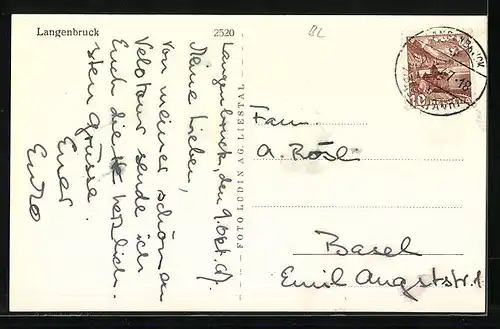 Langenbruck
2520
BL
Langenbruck, den 9. Okt.
Meine Lieben,
Von meiner schönen
Velotour sende ich
Euch die herzlich-
sten Grüsse.
Euer
FOTO LÜDIN A.G. LIESTAL
LANGENBRUCK
10
Fam.
A. Rösli
Basel
Emil Angststr. 1